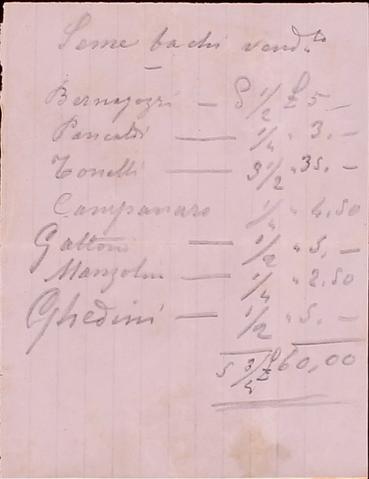 Seme bachi vend.to
Bernagozzi — S 1/2 £ 5 —
Pancaldi — 1/4 " 3. —
Tonelli — 3 1/2 " 35. —
Campanaro 1/4 " 4.50
Gattoni — 1/2 " 5. —
Manzolin — 1/4 " 2.50
Ghedini — 1/2 " 5. —
5 3/4 £ 60,00